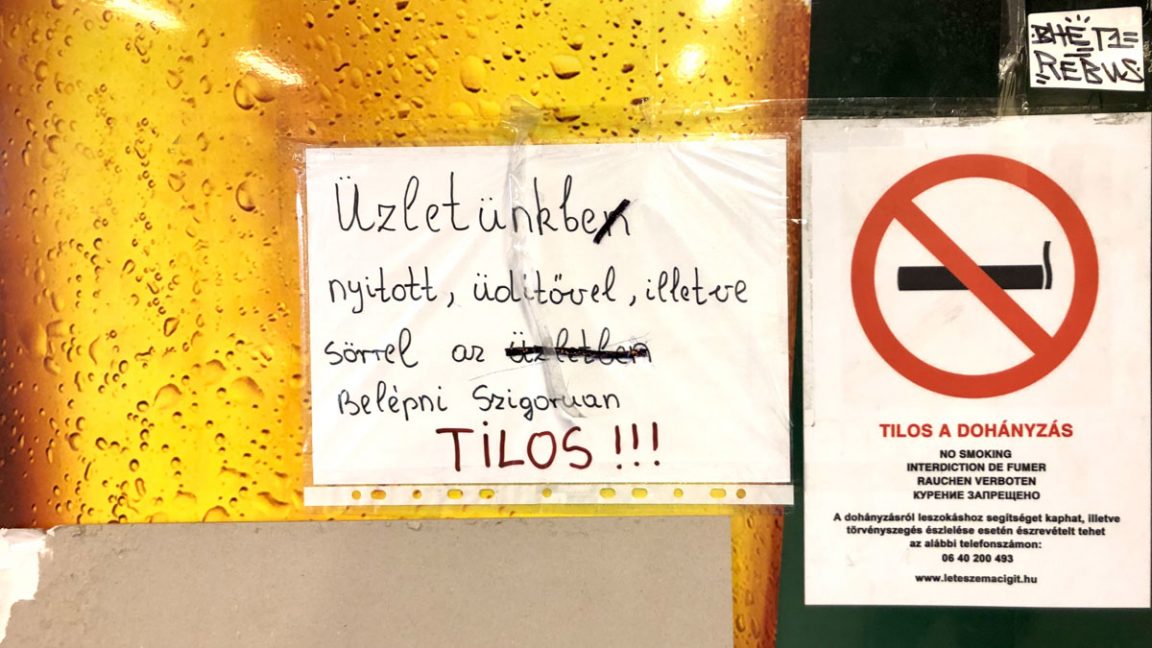 Üzletünkbe
nyitott, üditővel, illetve
sörrel az üzletben
Belépni Szigoruan
TILOS !!!
REBUS
TILOS A DOHÁNYZÁS
NO SMOKING
INTERDICTION DE FUMER
RAUCHEN VERBOTEN
КУРЕНИЕ ЗАПРЕЩЕНО
A dohányzásról leszokáshoz segítséget kaphat, illetve
törvényszegés észlelése esetén észrevételt tehet
az alábbi telefonszámon:
06 40 200 493
www.leteszemacigit.hu